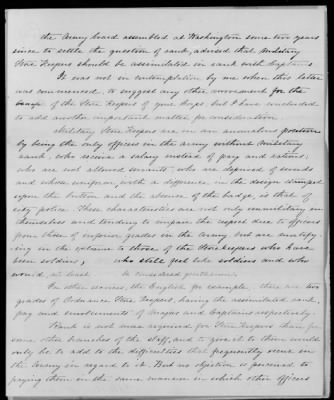 the Army board assembled at Washington some two years
since to settle the question of rank, advised that Military
Store Keepers should be assimilated in rank with Captains
It was not in contemplation by me when this letter
was commenced, to suggest any other movement for the
of the Store Keepers of your Corps but I have concluded
to add another important matter for consideration
Military Store Keepers are in an anomalous position
by being the only officers in the army without Military
rank, who receive a salary instead of pay and rations,
who are not allowed servants, who are deprived of swords
and whose uniform, with a difference in the design stamped
upon the button and the absence of the badge, is that of
city police. These characteristics are not only humiliating in
themselves and tending to impair the respect due to officers
from those of inferior grades in the Army but are mortify
ing in the extreme to those of the Storekeepers who have
been soldiers, who still feel like soldiers and who
would, at least be considered gentlemen.
In other services, the English for example, there are two
grades of Ordnance Store Keepers, having the assimilated rank,
pay and emoluments of Majors and Captains respectively.
Rank is not more required for Store Keepers than for
some other branches of the staff, and to give it to them would
only be to add to the difficulties that frequently occur in
the Army in regard to it. But no objection is perceived to
paying them in the same manner in which other officers